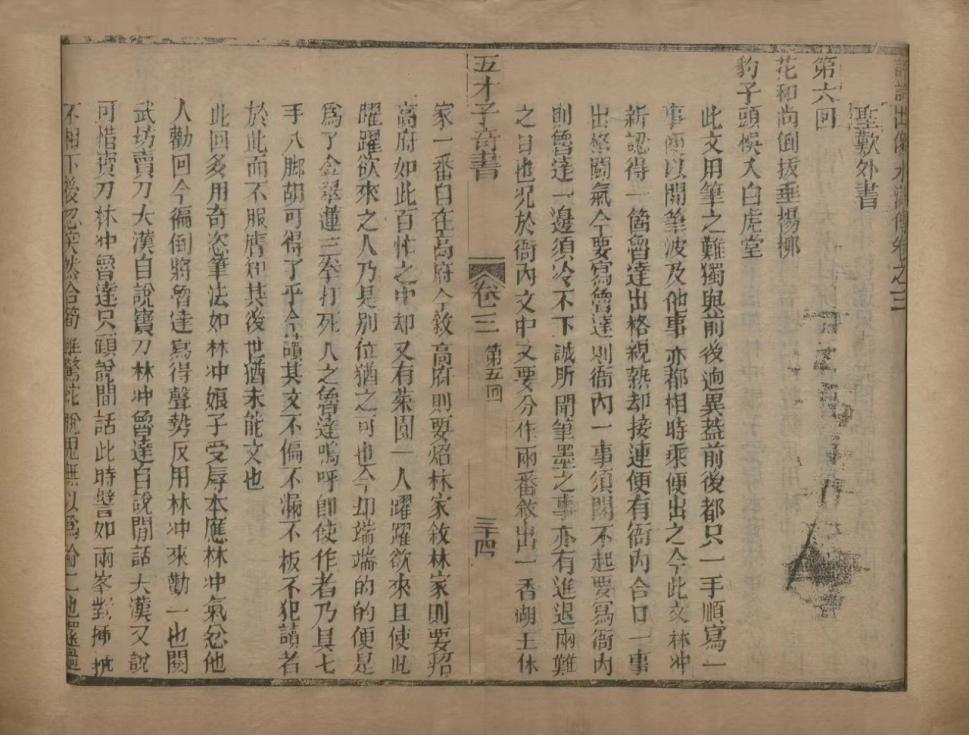 評論出像水滸傳卷之三
聖歎外書
第六回
花和尚倒拔垂楊柳
豹子頭悞入白虎堂
此文用筆之難獨與前後逈異葢前後都只一手順寫一
事便以閒筆波及他事亦都相時乘便出之今此文林冲
新認得一箇魯達出格親熱却接連便有衙內合口一事
出格鬬氣今要寫魯達則衙內一事須閣不起要寫衙內
則魯達一邊須冷不下誠所謂筆墨之事亦有進退兩難
之日也况於衙內文中又要分作兩番敘出一番
五才子奇書
卷三
第五回
三十四
家一番自在高府今敘高府則要炤林家敘林家則要炤
高府如此百忙之中却又有菜園一人躍躍欲來且使此
躍躍欲來之人乃是別位猶之可也今却端端的的便是
爲了金翠蓮三拳打死人之魯達嗚呼卽使作者乃具七
手八脚胡可得了乎今讀其文不偏不漏不板不犯讀者
於此而不服膺知其後世猶未能文也
此回多用奇恣筆法如林冲娘子受辱本應林冲氣忿他
人勸回今偏倒將魯達寫得聲勢反用林冲來勸一也閱
武坊賣刀大漢自說寶刀林冲魯達自說閒話大漢又說
可惜寶刀林冲魯達只顧說閒話此時譬如兩峯對插抗
不相下後忽突然合筍雖驚蛇脫兎無以爲喻二也還過